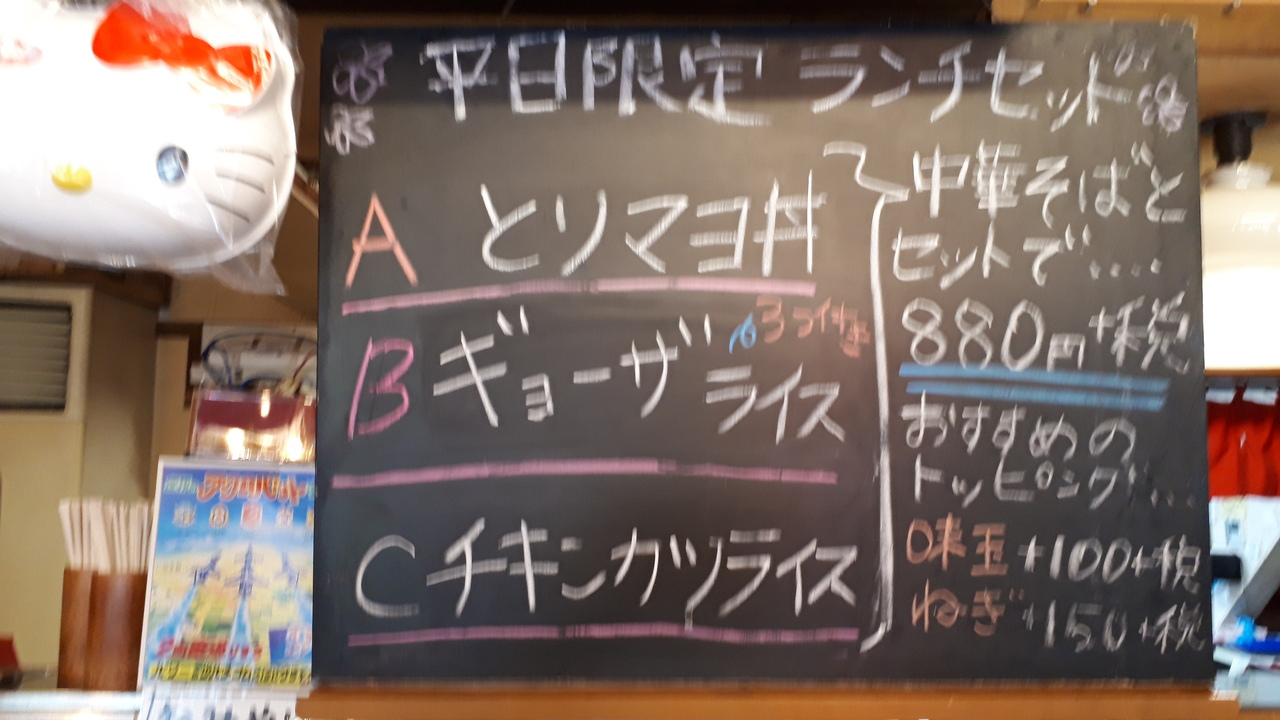 平日限定 ランチセット
A とりマヨ丼
B ギョーザライス
3コ付き
C チキンカツライス
中華そばと
セットで‥‥
880円+税
おすすめの
トッピング‥‥
味玉 +100+税
ねぎ +150+税